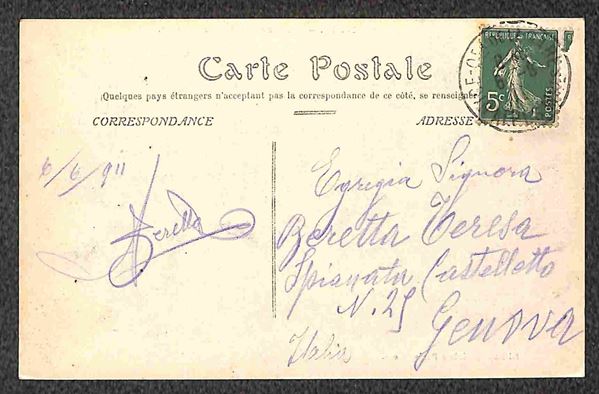 Carte Postale
(Quelques pays étrangers n'acceptant pas la correspondance de ce côté, se renseigner
CORRESPONDANCE
ADRESSE
REPUBLIQUE FRANÇAISE
5c
POSTES
6/6/911
Beretta
Egregia Signora
Beretta Teresa
Spianata Castelletto
N. 25
Genova
Italia